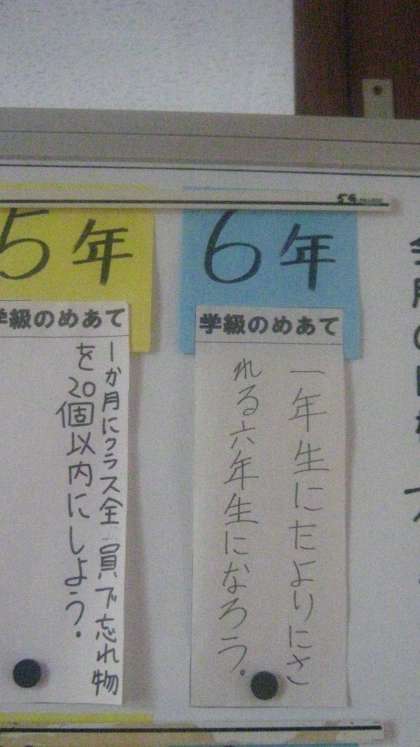 5年
学級のめあて
1か月にクラス全員で忘れ物
を20個以内にしよう。
6年
学級のめあて
一年生にたよりにさ
れる六年生になろう。